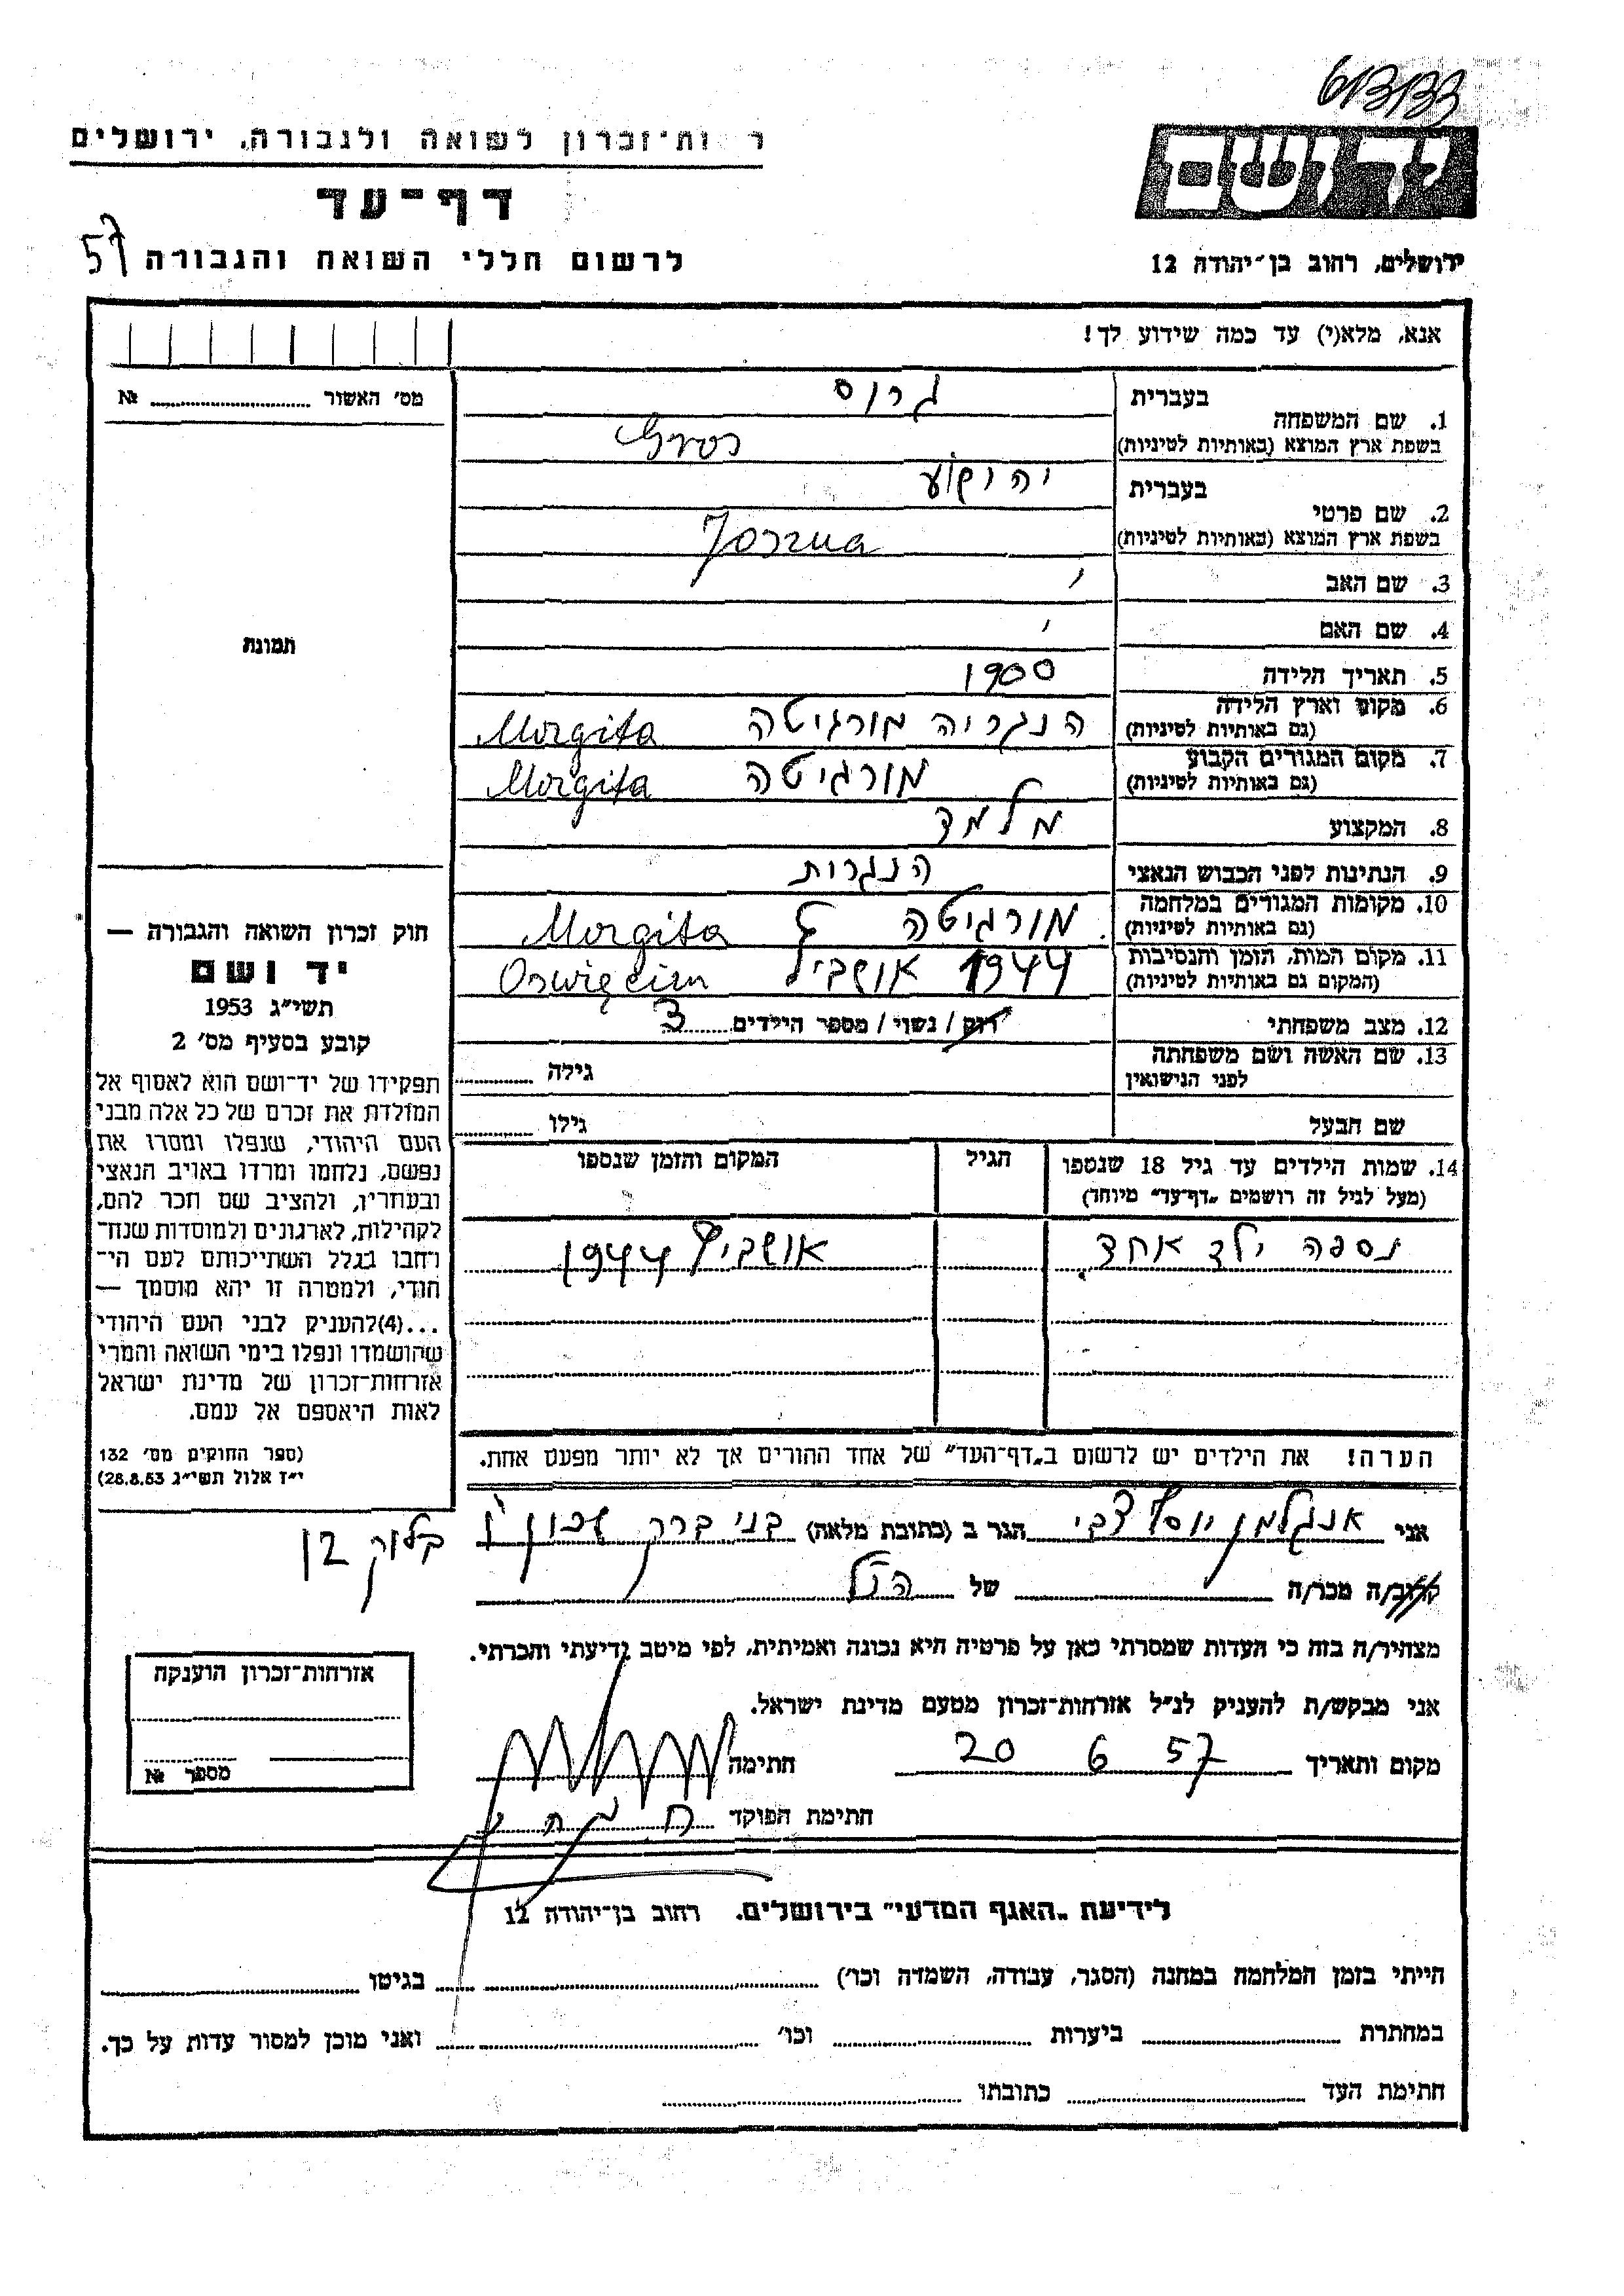 ר ות־זכרון לשואה ולגבורה, ירושלים
דף־עד
לרשום חללי השואה והגבורה
יד ושם
ירושלים, רחוב בן־יהודה 12
אנא, מלא(י) עד כמה שידוע לך!
מס׳ האשור № 
1. שם המשפחה בעברית גרוס
בשפת ארץ המוצא (באותיות לטיניות) Gros
2. שם פרטי בעברית יהושע
בשפת ארץ המוצא (באותיות לטיניות) Joszua
3. שם האב
4. שם האם
5. תאריך הלידה 1900
6. מקום וארץ הלידה (גם באותיות לטיניות) הנגריה מורגיטה Morgita
7. מקום המגורים הקבוע (גם באותיות לטיניות) מורגיטה Morgita
8. המקצוע מלמד
9. הנתינות לפני הכבוש הנאצי הנגרית
10. מקומות המגורים במלחמה (גם באותיות לטיניות) מורגיטה Morgita
11. מקום המות, הזמן והנסיבות (המקום גם באותיות לטיניות) 1944 אושביץ Oswięcim
12. מצב משפחתי רוק / נשוי / מספר הילדים 3
13. שם האשה ושם משפחתה לפני הנישואין גילה
שם הבעל גילו
14. שמות הילדים עד גיל 18 שנספו הגיל המקום והזמן שנספו
(מעל לגיל זה רושמים „דף־עד״ מיוחד)
נספה ילד אחד. אושביץ 1944
הערה! את הילדים יש לרשום ב„דף־העד״ של אחד ההורים אך לא יותר מפעם אחת.
תמונה
חוק זכרון השואה והגבורה —
יד ושם
תשי״ג 1953
קובע בסעיף מס׳ 2
תפקידו של יד־ושם הוא לאסוף אל
המולדת את זכרם של כל אלה מבני
העם היהודי, שנפלו ומסרו את
נפשם, נלחמו ומרדו באויב הנאצי
ובעוזריו, ולהציב שם וזכר להם,
לקהילות, לארגונים ולמוסדות שנח־
רבו בגלל השתייכותם לעם הי־
הודי, ולמטרה זו יהא מוסמך —
...(4)להעניק לבני העם היהודי
שהושמדו ונפלו בימי השואה והמרי
אזרחות־זכרון של מדינת ישראל
לאות היאספם אל עמם.
(ספר החוקים מס׳ 132
י״ז אלול תשי״ג 28.8.53)
אני אנגלמן יוסף צבי הגר ב (כתובת מלאה) בני ברק שכון ו׳ בלוק 12
קרוב/ה מכר/ה של הנ״ל
מצהיר/ה בזה כי העדות שמסרתי כאן על פרטיה היא נכונה ואמיתית, לפי מיטב ידיעתי והכרתי.
אני מבקש/ת להעניק לנ״ל אזרחות־זכרון מטעם מדינת ישראל.
מקום ותאריך 20 6 57 חתימה
חתימת הפוקד
אזרחות־זכרון הוענקה
מספר №
לידיעת „האגף המדעי״ בירושלים. רחוב בן־יהודה 12
הייתי בזמן המלחמה במחנה (הסגר, עבודה, השמדה וכו׳) בגיטו
במחתרת ביערות וכו׳ ואני מוכן למסור עדות על כך.
חתימת העד כתובתו